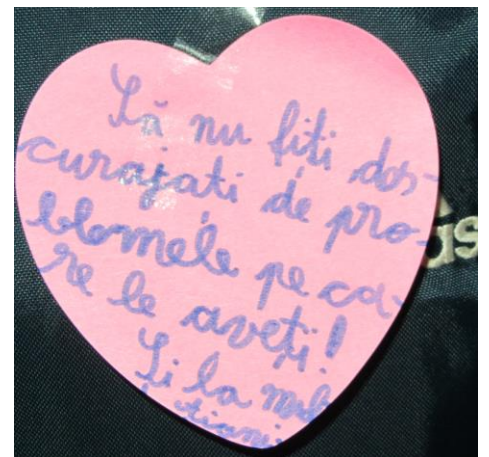 Să nu fiți des-
curajați de pro-
blemele pe ca-
re le aveți!
Și la mulți
ani
as